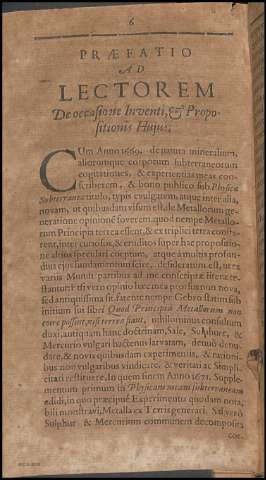 6
PRÆFATIO
AD
LECTOREM
De occasione Inventi, & Propo-
sitionis Hujus.
CUm Anno 1669. de natura mineralium,
aliorumque corporum subterraneorum
cogitationes, & experientias meas con-
scriberem, & bono publico sub Physicæ
Subterraneæ titulo, typis evulgarem, atque inter alia,
novam, ut quibusdam visum est, de Metallorum ge-
neratione opinionē foverem, quod nempe Metallo-
rum Principia terrea essent, & ex triplici terra constarent,
inter curiosos, & eruditos super hac propositio-
ne alios speculari cœptum, atque à multis profun-
dius ejus fundamentum scire, desideratum est, ut ex
variis Mundi partibus ad me conscriptæ literæ te-
stantur: Etsi vero opinio hæc mea prorsus non nova,
sed antiquissima sit, fatente nempe Gebro statim sub
initium sui libri Quod Principia Metallorum non
terre possint, nisi terrea fiant, nihilominus consultum
duxi, antiquam hanc doctrinam, Sale, Sulphure, &
Mercurio vulgari hactenus larvatam, denuò denu-
dare, & novis quibusdam experimentis, & rationi-
bus non vulgaribus vindicare, & veritati ac Simpli-
citati restituere, In quem finem Anno 1671. Supple-
mentum primum in Physicam meam subterraneam
ædidi, in quo præcipuè Experimento quodam nota-
bili monstravi, Metalla ex Terris generari. Sal verò
Sulphur, & Mercurium communem decomposita